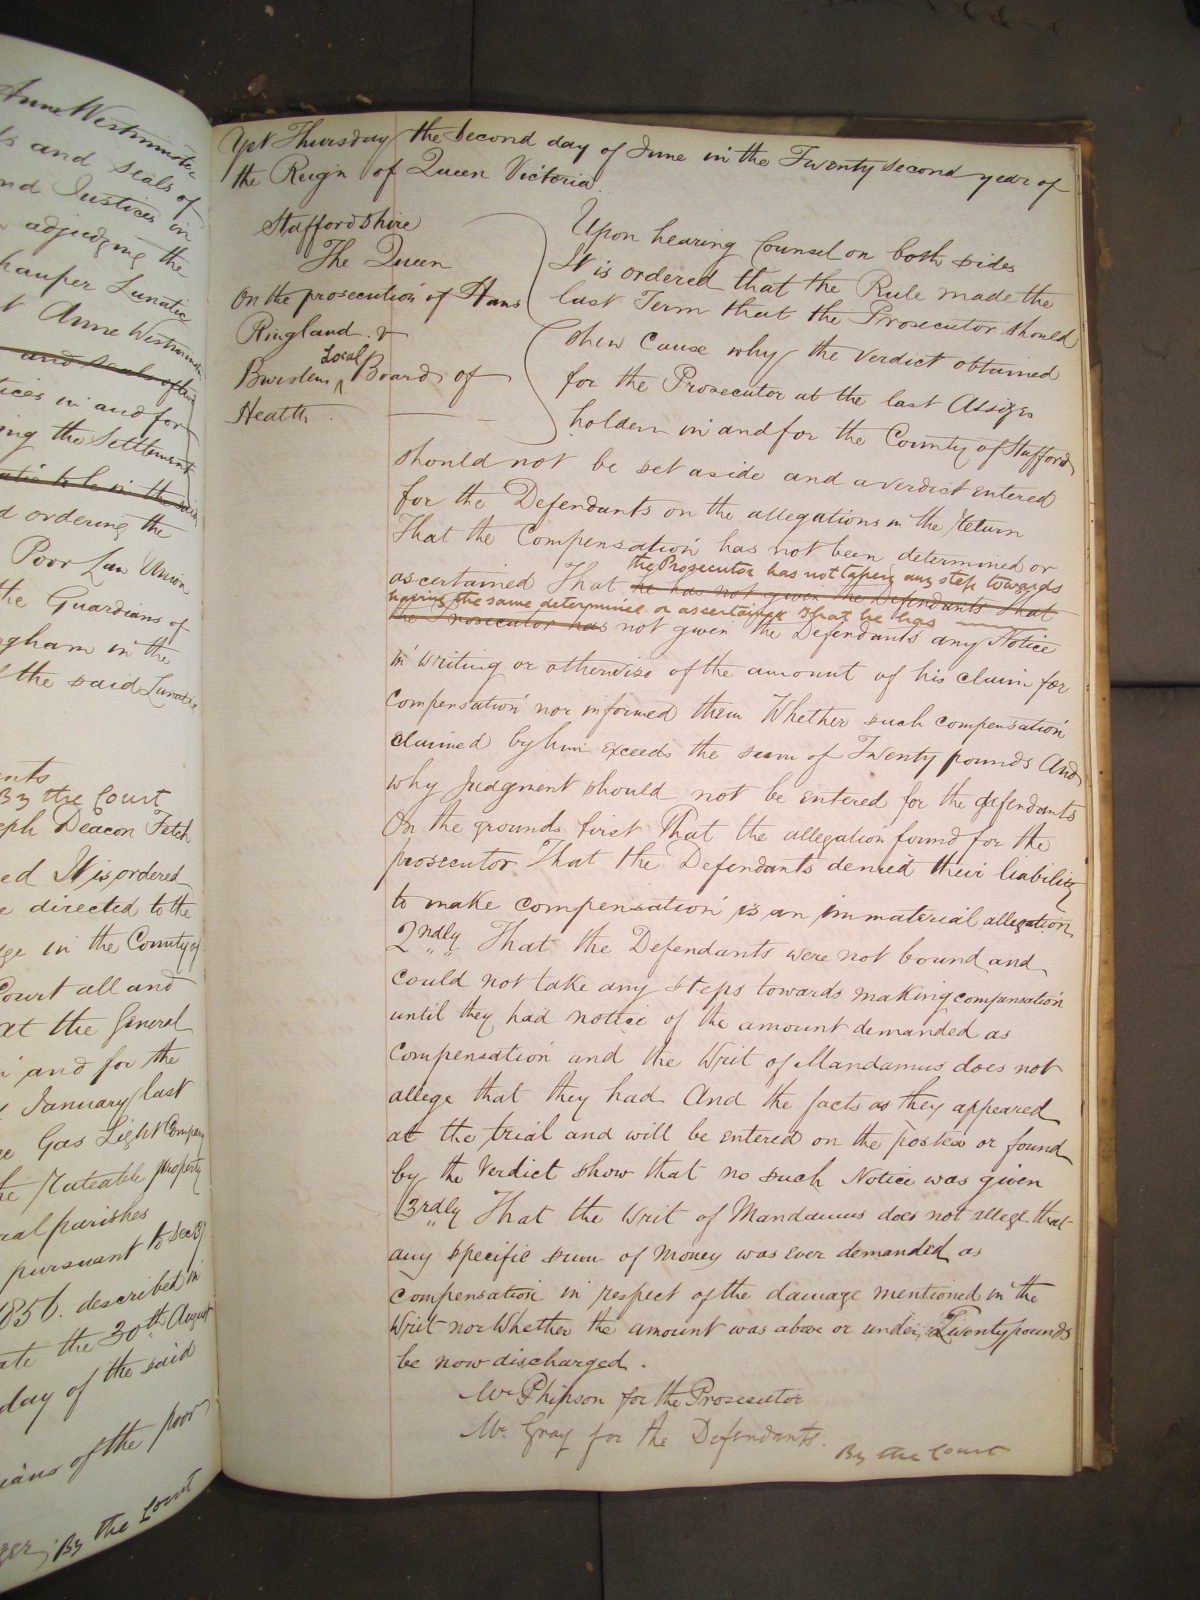 Anne Westminster
and seals of
nd Justices in
adjudging the
pauper Lunatic
t Anne Westminster
and seals of two
tices in and for
ing the Settlement
d ordering the
Poor Law Union
the Guardians of
gham in the
f the said Lunatic
nts
By the Court
eph Deacon Fetch
ed It is ordered
e directed to the
ge in the County of
Court all and
at the General
and for the
January last
Gas Light Company
he Rateable property
ral parishes
pursuant to
1856. described in
ate the 30th August
day of the said
ians of the poor
By the Court
Yet Thursday the Second day of June in the Twenty second year of
the Reign of Queen Victoria.
Staffordshire
The Queen
On the prosecution of Hans
Ringland. v
Burslem Local Board of
Health.
Upon hearing Counsel on both sides
It is ordered that the Rule made the
last Term that the Prosecutor should
shew Cause why the verdict obtained
for the Prosecutor at the last Assizes
holden in and for the County of Stafford
should not be set aside and a verdict entered
for the Defendants on the allegations in the Return
That the Compensation has not been determined or
the Prosecutor has not taken any step towards
ascertained That he has not given the Defendants that
having the same determined or ascertained That he has
the Prosecutor has not given the Defendants any Notice
in writing or otherwise of the amount of his claim for
compensation nor informed them Whether such compensation
claimed by him exceeds the sum of Twenty pounds And
why Judgment should not be entered for the defendants
On the grounds first That the allegation found for the
prosecutor That the Defendants denied their liability
to make compensation is an immaterial allegation
2ndly That the Defendants were not bound and
could not take any steps towards making compensation
until they had notice of the amount demanded as
compensation and the Writ of Mandamus does not
allege that they had And the facts as they appeared
at the trial and will be entered on the Postea or found
by the Verdict show that no such Notice was given
3rdly That the Writ of Mandamus does not allege that
any specific sum of money was ever demanded as
compensation in respect of the damage mentioned in the
Writ nor Whether the amount was above or under Twenty pounds
be now discharged.
Mr Phipson for the Prosecutor
Mr. Gray for the Defendants.
By the Court